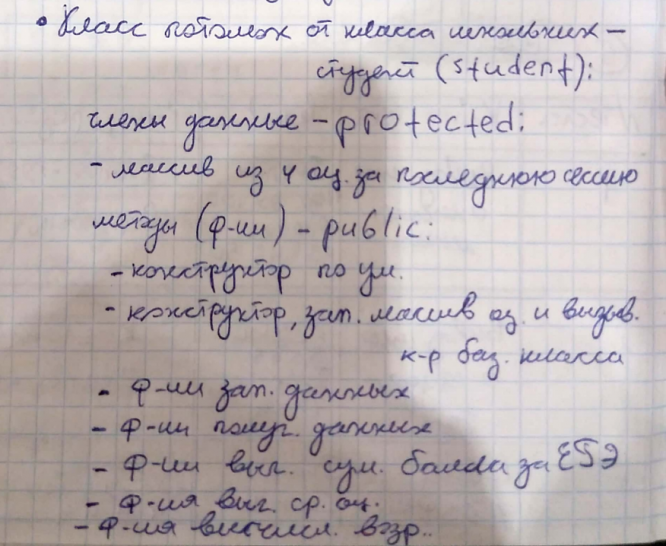 • Класс потомок от класса школьник –
студент (student):
члены данные – protected:
- массив из 4 оц. за последнюю сессию
методы (ф-ии) – public:
- конструктор по ум.
- конструктор, зап. массив оц. и вызыв.
к-р баз. класса
- ф-ии зап. данных
- ф-ии получ. данных
- ф-ии выч. сум. балла за ЕГЭ
- ф-ия выч. ср. оц.
- ф-ия вычисл. возр..